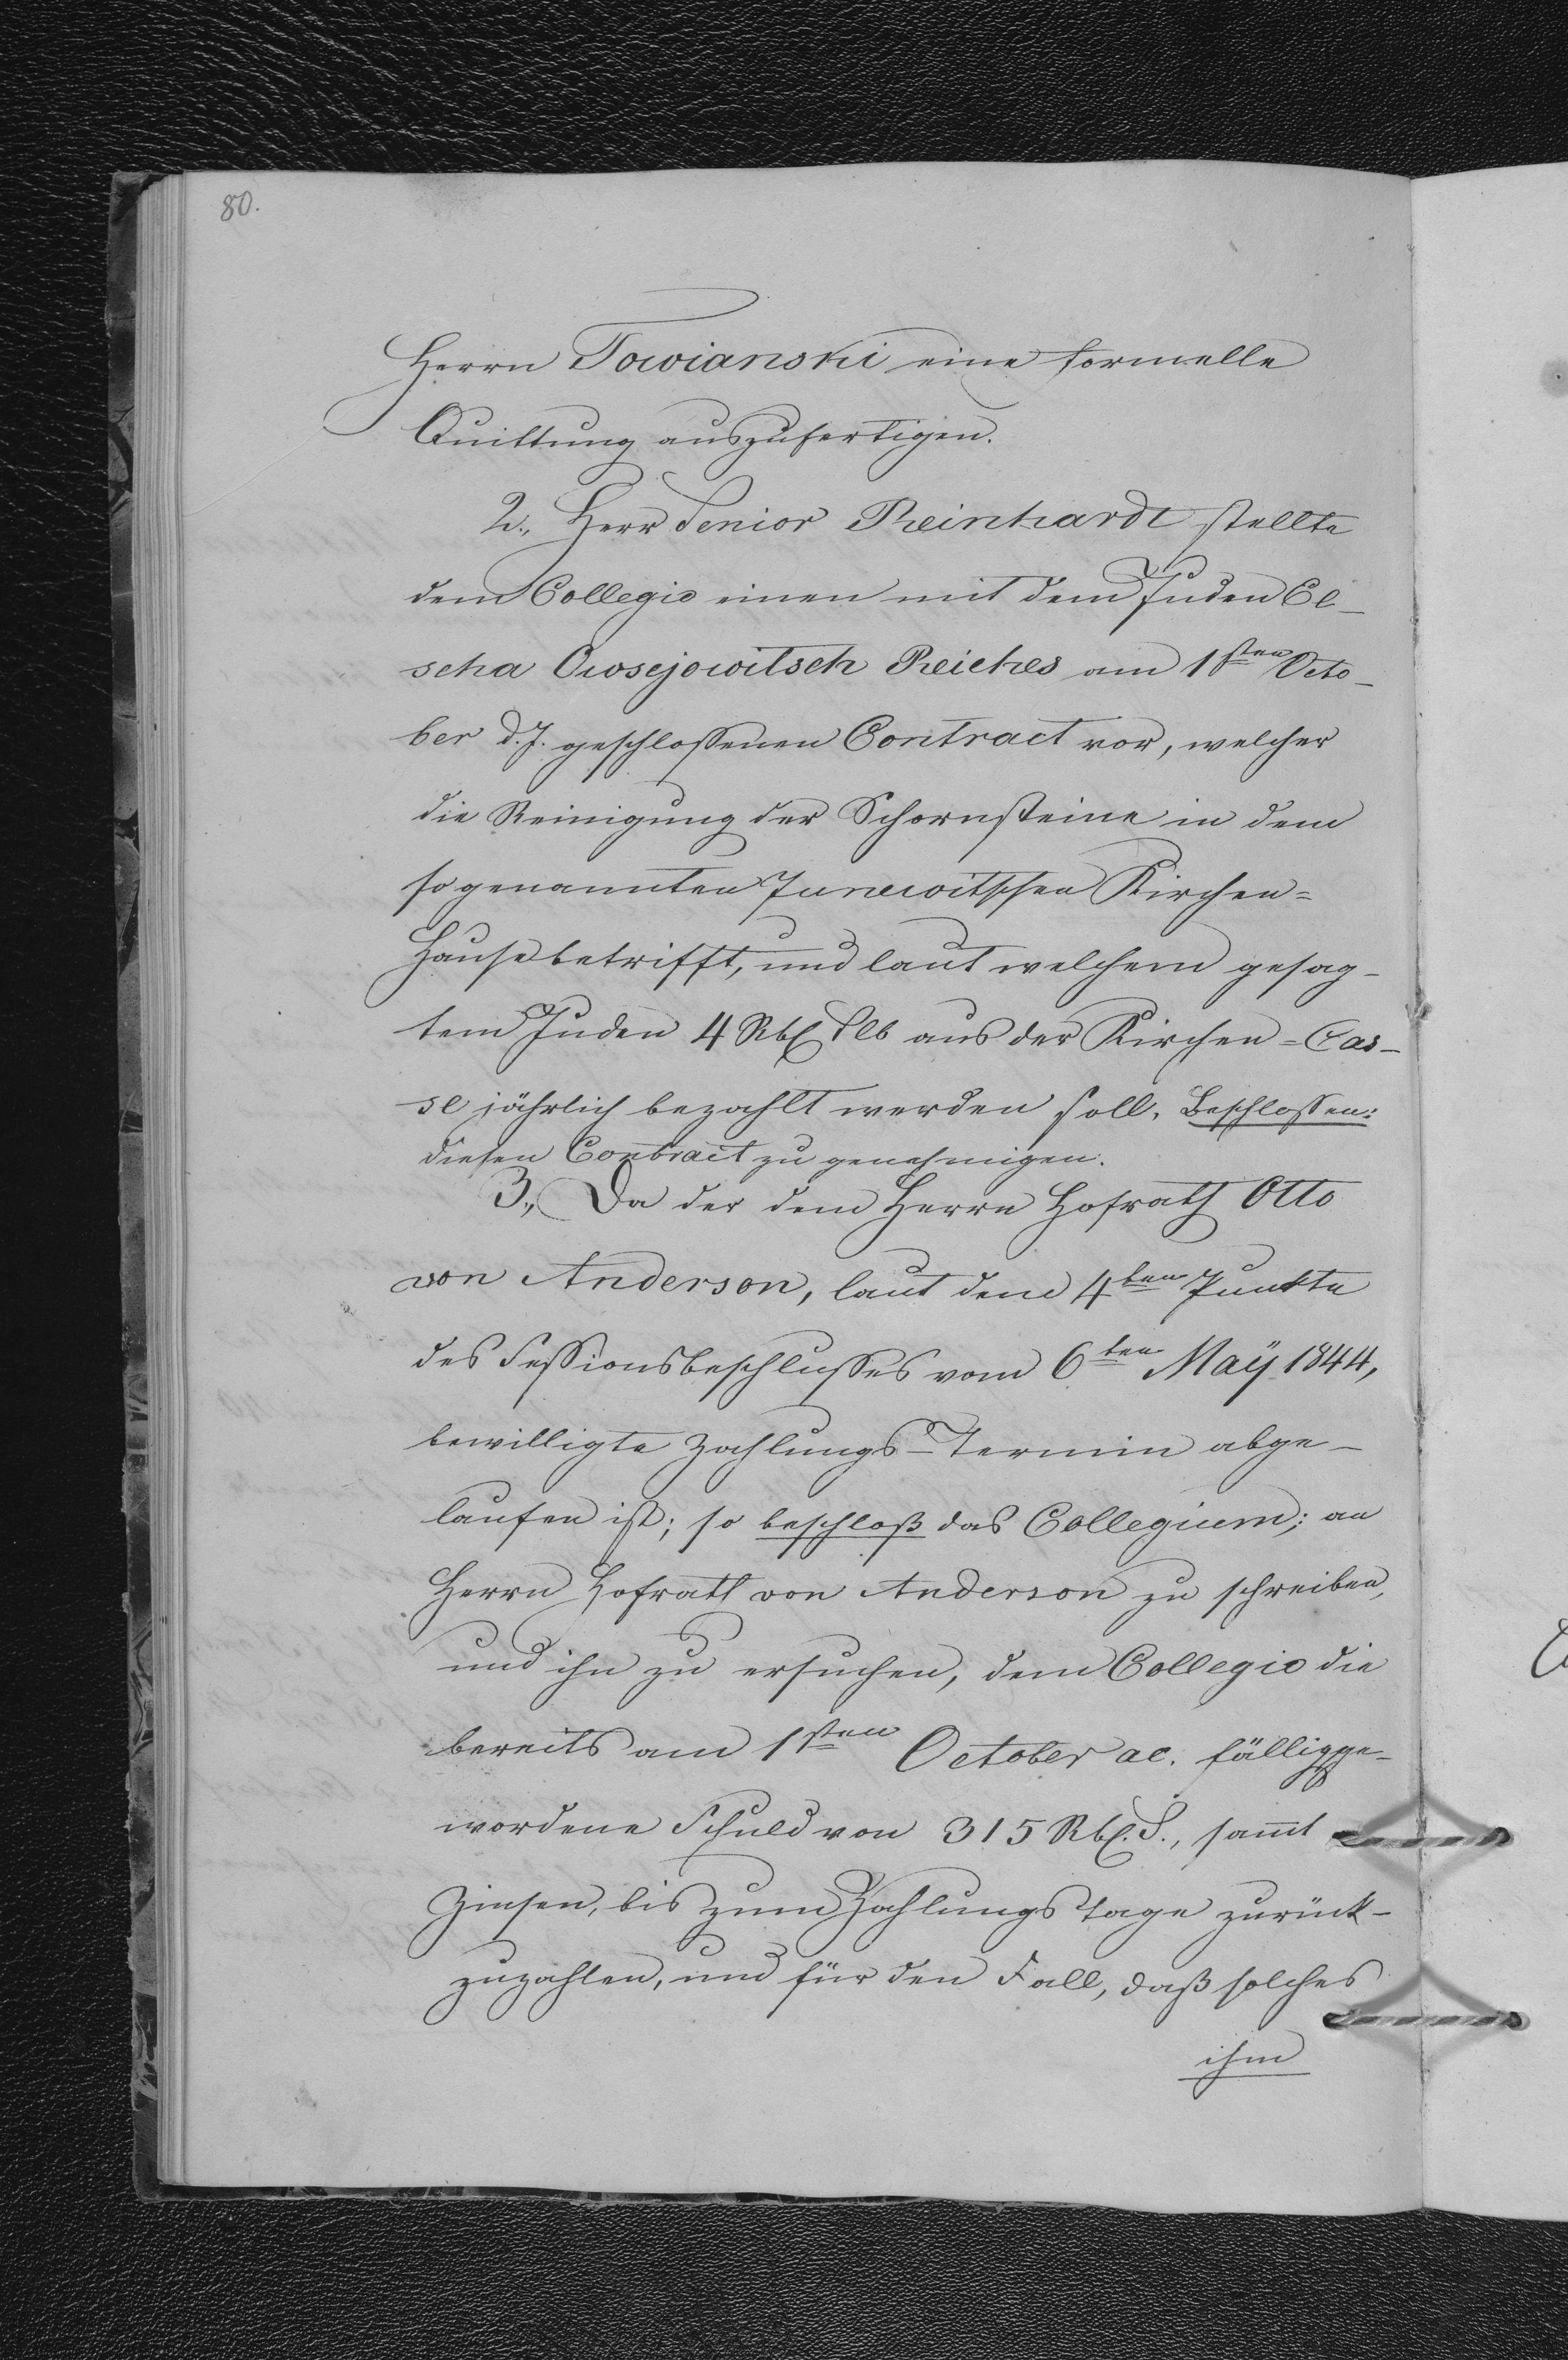 80.
Herrn Towianski eine formelle
Quittung auszufertigen.
2., Herr Senior Reinhardt stellte
dem Collegio einen mit dem Juden El-
scha Owsejowitsch Reiches am 1sten Octo-
ber d. J. geschlossenen Contract vor, welcher
die Reinigung der Schornsteine in dem
sogenannten Kirchen=
Hause betrifft, und laut welchem gesag-
tem Juden 4 Rbl Slb aus der Kirchen=Cas-
se jährlich bezahlt werden soll. Beschlossen:
diesen Contract zu genehmigen.
3., Da der dem Herrn Hofrath Otto
von Anderson, laut dem 4ten Punkte
des Sessionsbeschlusses vom 6ten Maÿ 1844,
bewilligte Zahlungs-Termin abge-
laufen ist; so beschloß das Collegium; an
Herrn Hofrath von Anderson zu schreiben,
und ihn zu ersuchen, dem Collegio die
bereits am 1sten October ac. fälligge-
wordene Schuld von 315 Rbl. S., samt
Zinsen, bis zum Zahlungstage zurück-
zuzahlen, und für den Fall, daß solches
ihm